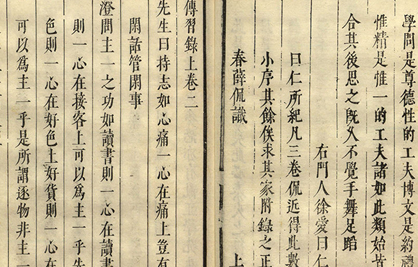 學問是尊德性的工夫博文是約禮
惟精是惟一的工夫諸如此類始皆
合其後思之既久不覺手舞足蹈
右門人徐愛曰仁
曰仁所紀凡三卷侃近得此數
小序其餘俟求其家附錄之正
春薛侃識
上
傳習錄上卷二
先生曰持志如心痛一心在痛上豈有
閒話管閒事
澄問主一之功如讀書則一心在讀書
則一心在接客上可以爲主一乎先
色則一心在好色上好貨則一心在
可以爲主一乎是所謂逐物非主一